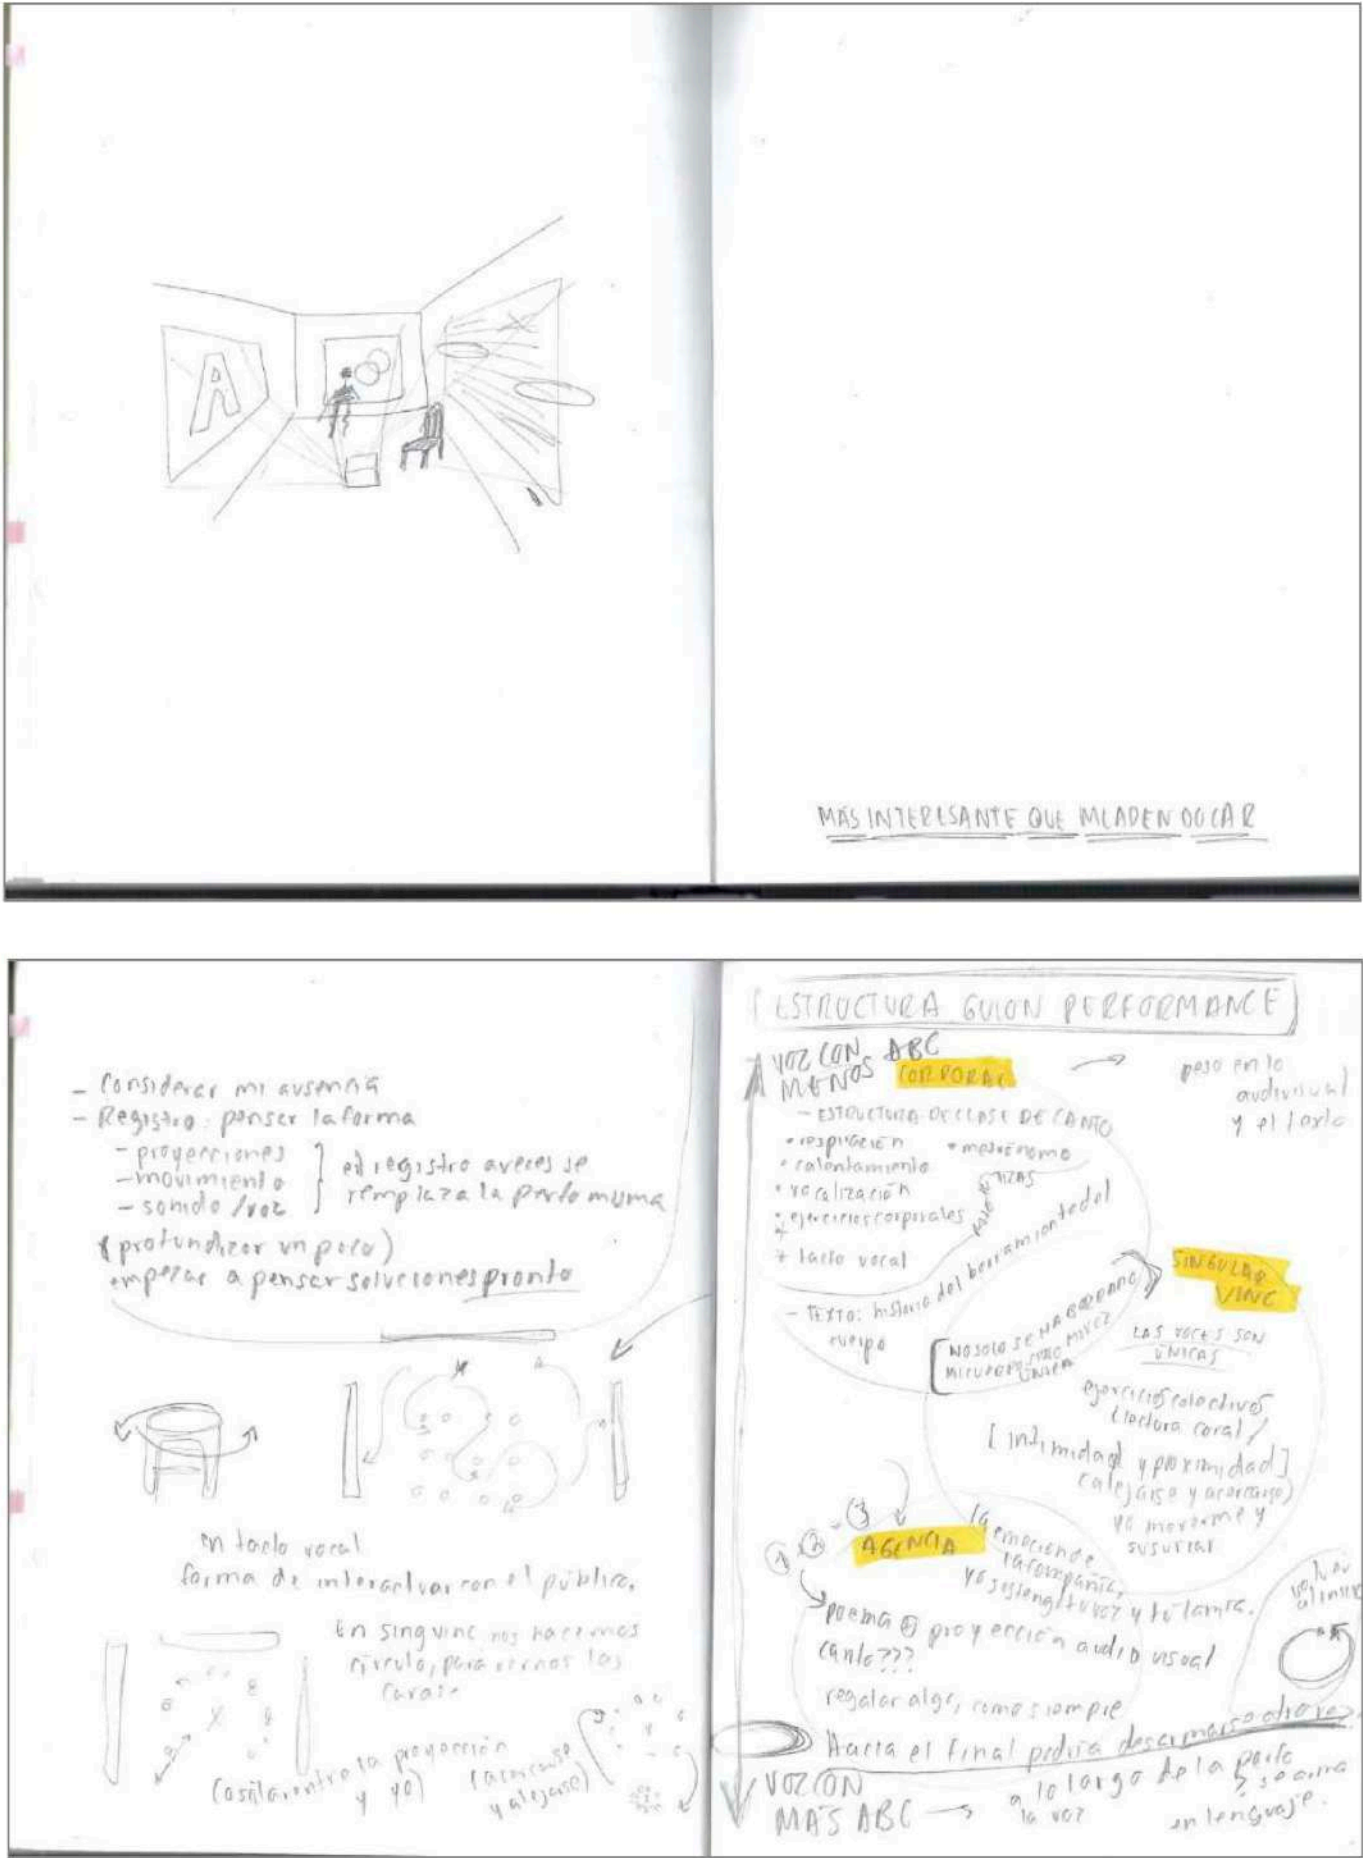 A
MÁS INTERESANTE QUE MLADEN DOLAR
- Considerar mi ausencia
- Registro: pensar la forma
- proyecciones
- movimiento
- sonido / voz
el registro a veces se
remplaza la perfo misma
(profundizar un poco)
empezar a pensar soluciones pronto
en tacto vocal
forma de interactuar con el público.
En sing vinc nos hacemos
círculo, para vernos las
caras
(oscilar entre la proyección
y yo)
(acercarse
y alejarse)
ESTRUCTURA GUION PERFORMANCE
VOZ CON ABC
MENOS
CORPORAL
peso en lo
audiovisual
y el texto
- ESTRUCTURA DE CLASE DE CANTO
• respiración
• metrónomo
• calentamiento
• vocalización
• ejercicios corporales
+ tacto vocal
- TEXTO: historia del borramiento del
cuerpo
NO SOLO SE HA BORRADO
MI CUERPO SINO MI VOZ
ÚNICA
SINGULAR
VINC
LAS VOCES SON
ÚNICAS
ejercicios colectivos
lectura coral /
[intimidad y proximidad]
(alejarse y acercarse)
yo moverme y
susurrar
1 2 - 3
AGENCIA
la emoción de
la compañía,
yo sostengo tu voz y tú la mía.
poema ⊕ proyección audiovisual
canto???
regalar algo, como siempre
Hacia el final podría desarmarse otra vez
VOZ CON
MÁS ABC →
a lo largo de la perfo
la voz
se arma
en lenguaje.